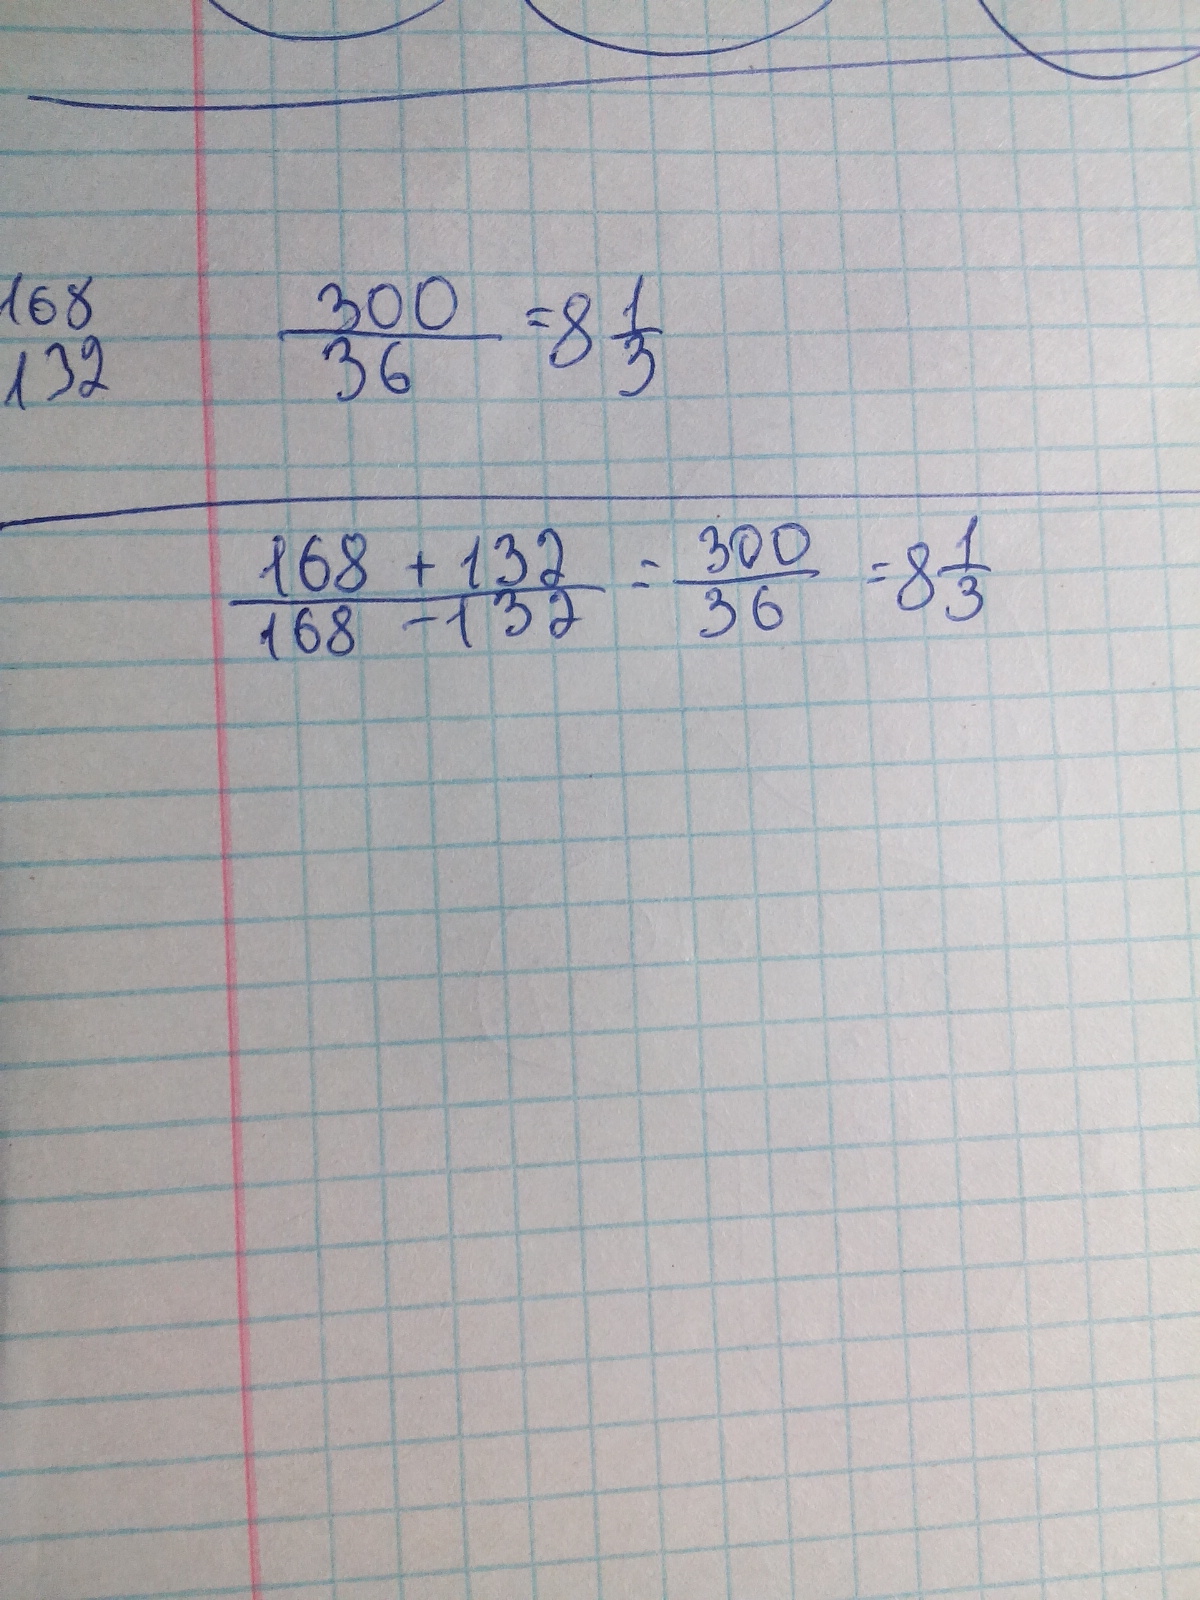 168
132
300/36 = 8 1/3
168 + 132 / 168 - 132 = 300/36 = 8 1/3